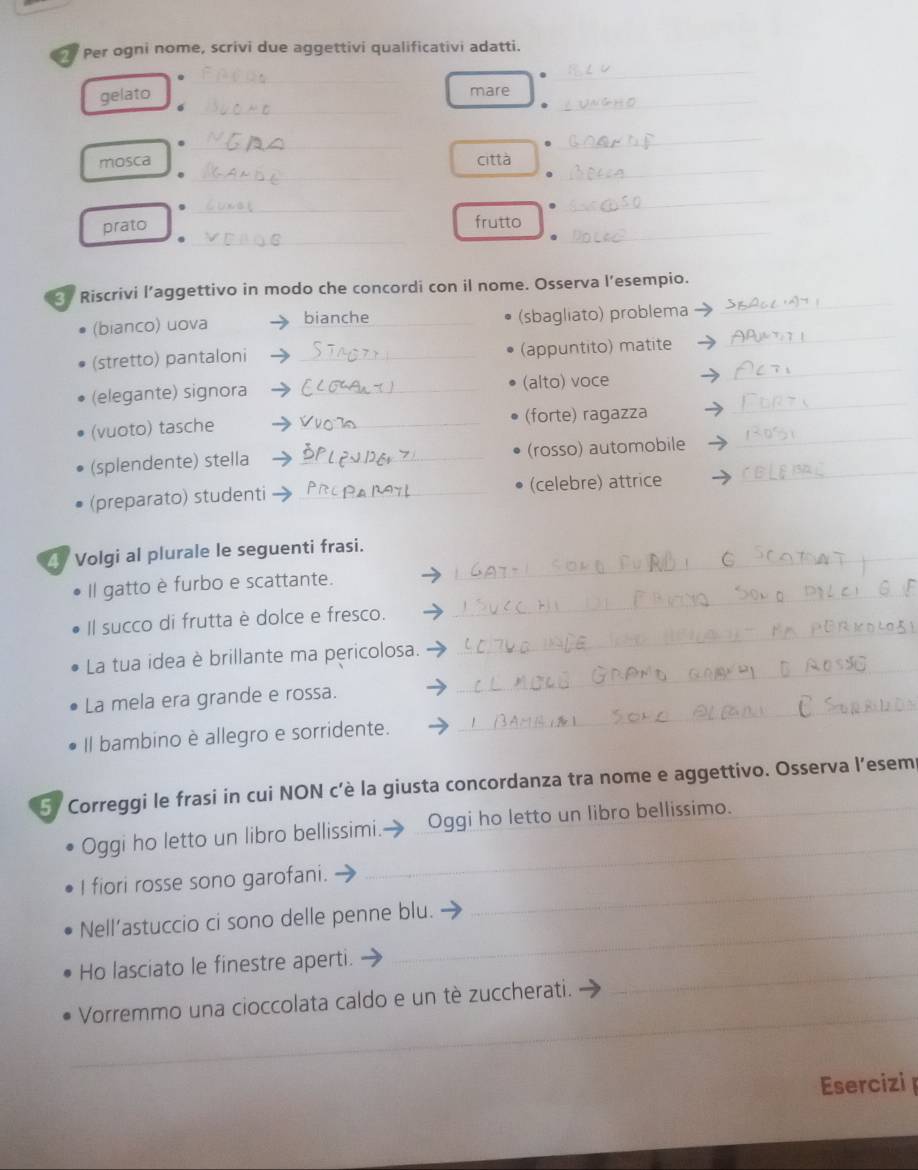 2 Per ogni nome, scrivi due aggettivi qualificativi adatti.
gelato
BUONO
mare
BLU
LUNGHO
mosca
NGRA
città
GRANDE
BELLA
prato
frutto
SUCOSO
3 Riscrivi l'aggettivo in modo che concordi con il nome. Osserva l'esempio.
• (bianco) uova → bianche
• (sbagliato) problema → SBAGLIATI
• (stretto) pantaloni → STRETTI
• (appuntito) matite →
• (elegante) signora → ELEGANTI
• (alto) voce → ALTI
• (vuoto) tasche →
• (forte) ragazza → FORTI
• (splendente) stella →
• (rosso) automobile → ROSI
• (preparato) studenti → PREPARATI
• (celebre) attrice →
4 Volgi al plurale le seguenti frasi.
• Il gatto è furbo e scattante. → I GATTI SONO FURBI
• Il succo di frutta è dolce e fresco. → I SUCCHI DI SONO
• La tua idea è brillante ma pericolosa. → MA
• La mela era grande e rossa. →
• Il bambino è allegro e sorridente. → I BAMBINI SONO
5 Correggi le frasi in cui NON c'è la giusta concordanza tra nome e aggettivo. Osserva l'esem
• Oggi ho letto un libro bellissimi. → Oggi ho letto un libro bellissimo.
• I fiori rosse sono garofani. →
• Nell'astuccio ci sono delle penne blu. →
• Ho lasciato le finestre aperti. →
• Vorremmo una cioccolata caldo e un tè zuccherati. →
Esercizi